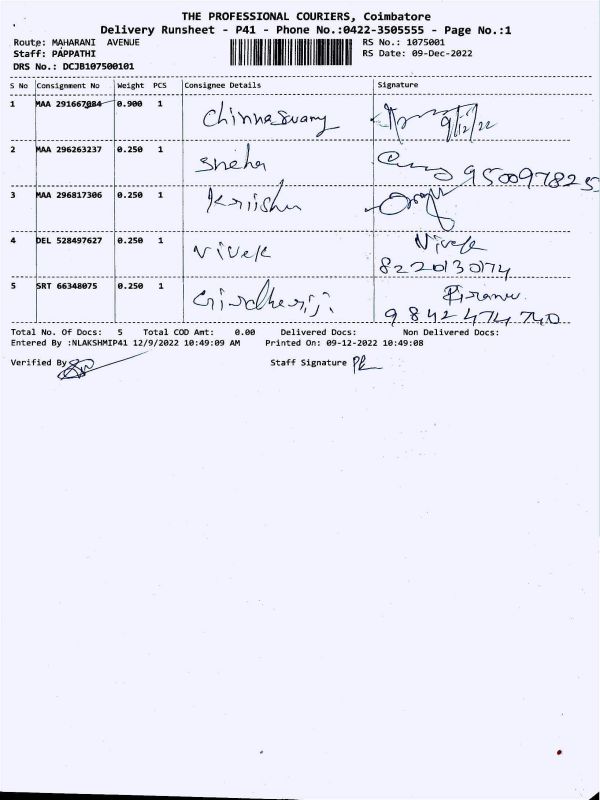 THE PROFESSIONAL COURIERS, Coimbatore
Delivery Runsheet - P41 - Phone No.:0422-3505555 - Page No.:1
Route: MAHARANI AVENUE RS No.: 1075001
Staff: PAPPATHI RS Date: 09-Dec-2022
DRS No.: DCJB107500101
S No Consignment No Weight PCS Consignee Details Signature
1 MAA 291667084 0.900 1 Chinnaswamy 9/12/22
2 MAA 296263237 0.250 1 Sneha 950097825
3 MAA 296817306 0.250 1 Kriishn
4 DEL 528497627 0.250 1 Vivek Vivek
8220130174
5 SRT 66348075 0.250 1 Giridheriji
9842474740
Total No. Of Docs: 5 Total COD Amt: 0.00 Delivered Docs: Non Delivered Docs:
Entered By :NLAKSHMIP41 12/9/2022 10:49:09 AM Printed On: 09-12-2022 10:49:08
Verified By Staff Signature